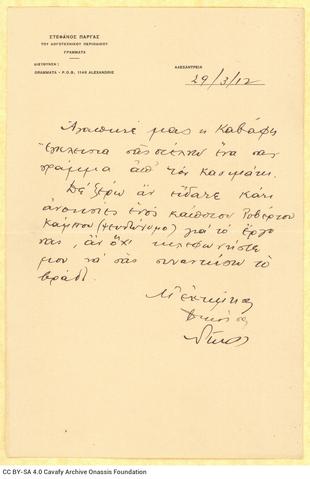 ΣΤΕΦΑΝΟΣ ΠΑΡΓΑΣ
ΤΟΥ ΛΟΓΟΤΕΧΝΙΚΟΥ ΠΕΡΙΟΔΙΚΟΥ
ΓΡΑΜΜΑΤΑ
ΔΙΕΥΘΥΝΣΙΣ :
GRAMMATA - P.O.B. 1146 ALEXANDRIE
ΑΛΕΞΑΝΔΡΕΙΑ
29/3/12
Ἀγαπητέ μας κ Καβάφη
Ἔγκλειστα σᾶς στέλνω ἕνα σας
γράμμα ἀπ' τὸν
Δὲ ξέρω ἂν εἴδατε κάτι
ἀνοησίες ἑνὸς κάποιου Ροβέρτου
Κάμπου (ψευδώνυμο) γιὰ τὸ ἔργο
σας, ἂν ὄχι τηλεφωνήστε
μου νὰ σᾶς συναντήσω τὸ
βράδυ.
Μ' ἐκτίμηση
δικός σας
Νίκος
CC BY-SA 4.0 Cavafy Archive Onassis Foundation